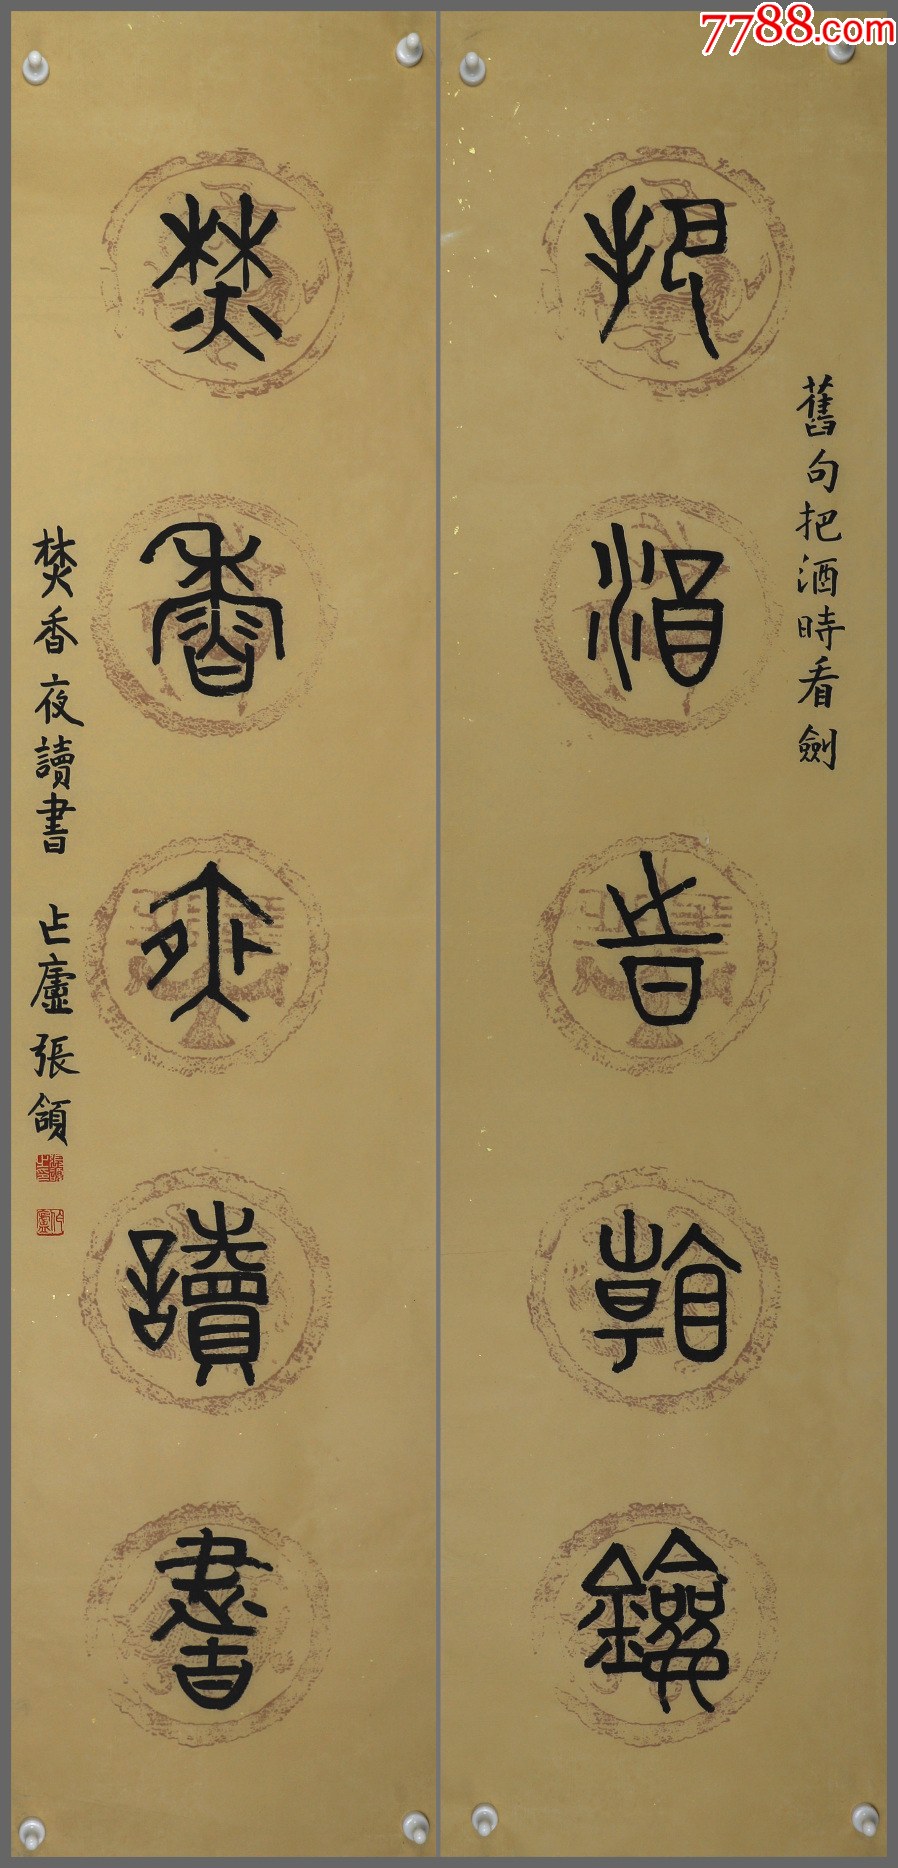 7788.com
舊句把酒時看劍
把酒時看劍
焚香夜讀書
焚香夜讀書 乍虛張頷